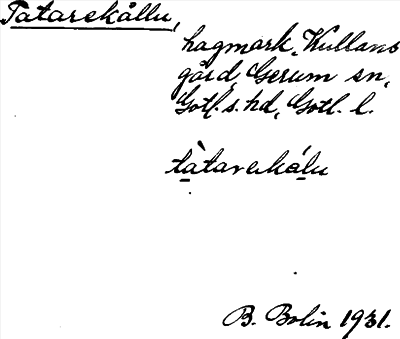 Tatarekällu,
hagmark, Kullans
gård, Gerum sn,
Gotl. s. hd, Gotl. l.
tàtarekálu
B. Bolin 1931.